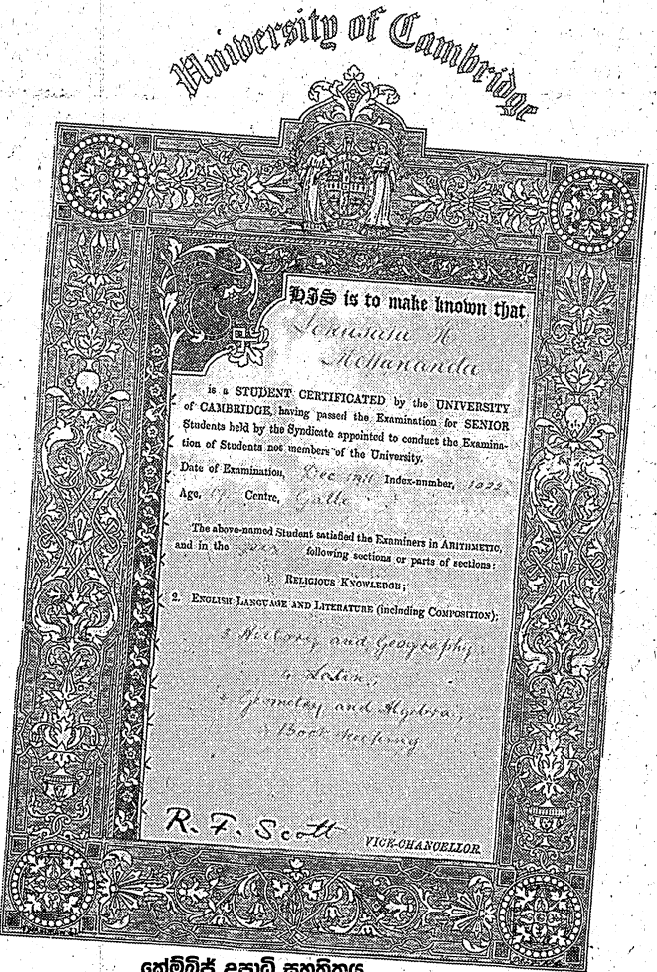 University of Cambridge
THIS is to make known that
H
Mettananda
is a STUDENT CERTIFICATED by the UNIVERSITY
of CAMBRIDGE, having passed the Examination for SENIOR
Students held by the Syndicate appointed to conduct the Examina-
tion of Students not members of the University.
Date of Examination, Dec 1911 Index-number, 1022,
Age, 17, Centre, Galle
The above-named Student satisfied the Examiners in ARITHMETIC,
and in the following sections or parts of sections:
1. RELIGIOUS KNOWLEDGE;
2. ENGLISH LANGUAGE AND LITERATURE (including COMPOSITION);
3 History and Geography
4 Latin;
5 Geometry and Algebra,
Book-keeping
R. F. Scott VICE-CHANCELLOR
කේම්බ්‍රිජ් උපාධි සහතිකය